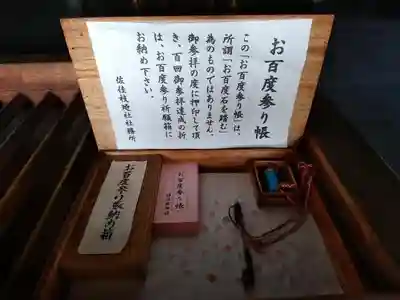 お百度参り帳
この「お百度参り帳」は、
所謂「お百度石を踏む」
為のものではありません。
御参拝の度に押印して頂
き、百回御参拝達成の折
は、お百度参り祈願箱に
お納め下さい。
お百度参り収納め箱
お百度参り帳